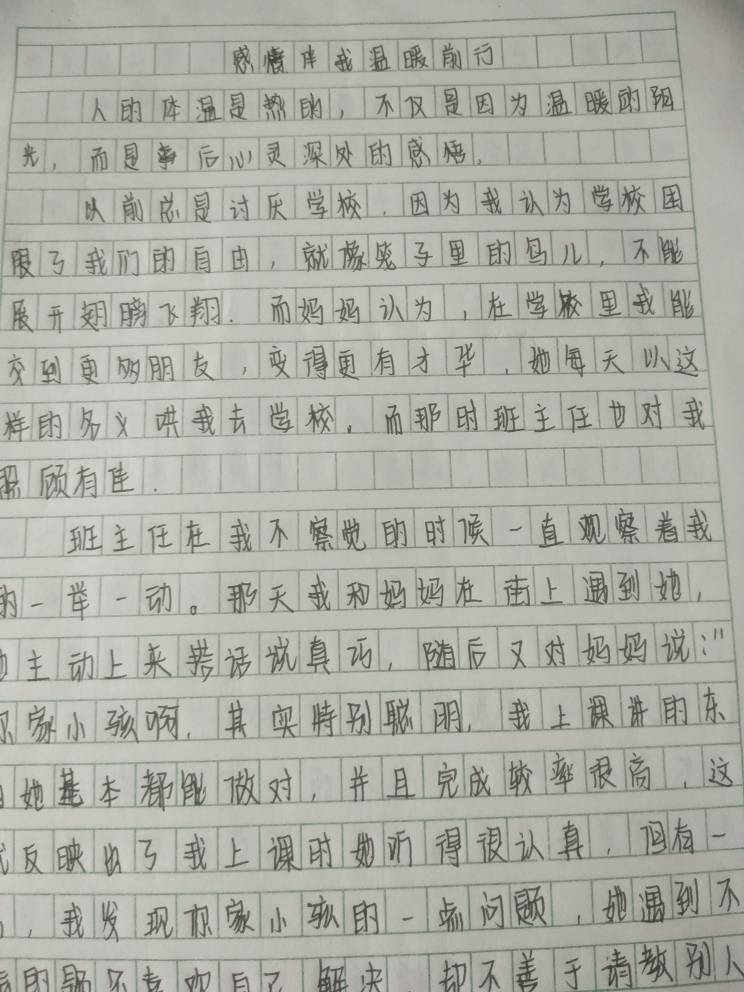 感情伴我温暖前行
人的体温是热的，不仅是因为温暖的阳
光，而是事后心灵深处的感悟.
以前总是讨厌学校.因为我认为学校困
限了我们的自由，就像笼子里的鸟儿，不能
展开翅膀飞翔.而妈妈认为，在学校里我能
交到更多朋友，变得更有才华.她每天以这
样的名义哄我去学校.而那时班主任也对我
照顾有佳.
班主任在我不察觉的时候一直观察着我
的一举一动。那天我和妈妈在街上遇到她，
她主动上来搭话说真巧，随后又对妈妈说："
你家小孩啊.其实特别聪明.我上课讲的东
她基本都能做对，并且完成较率很高.这
反映出了我上课时她听得很认真.但有一
，我发现你家小孩的一点问题，她遇到不
的题不喜欢自己解决，却不善于请教别人